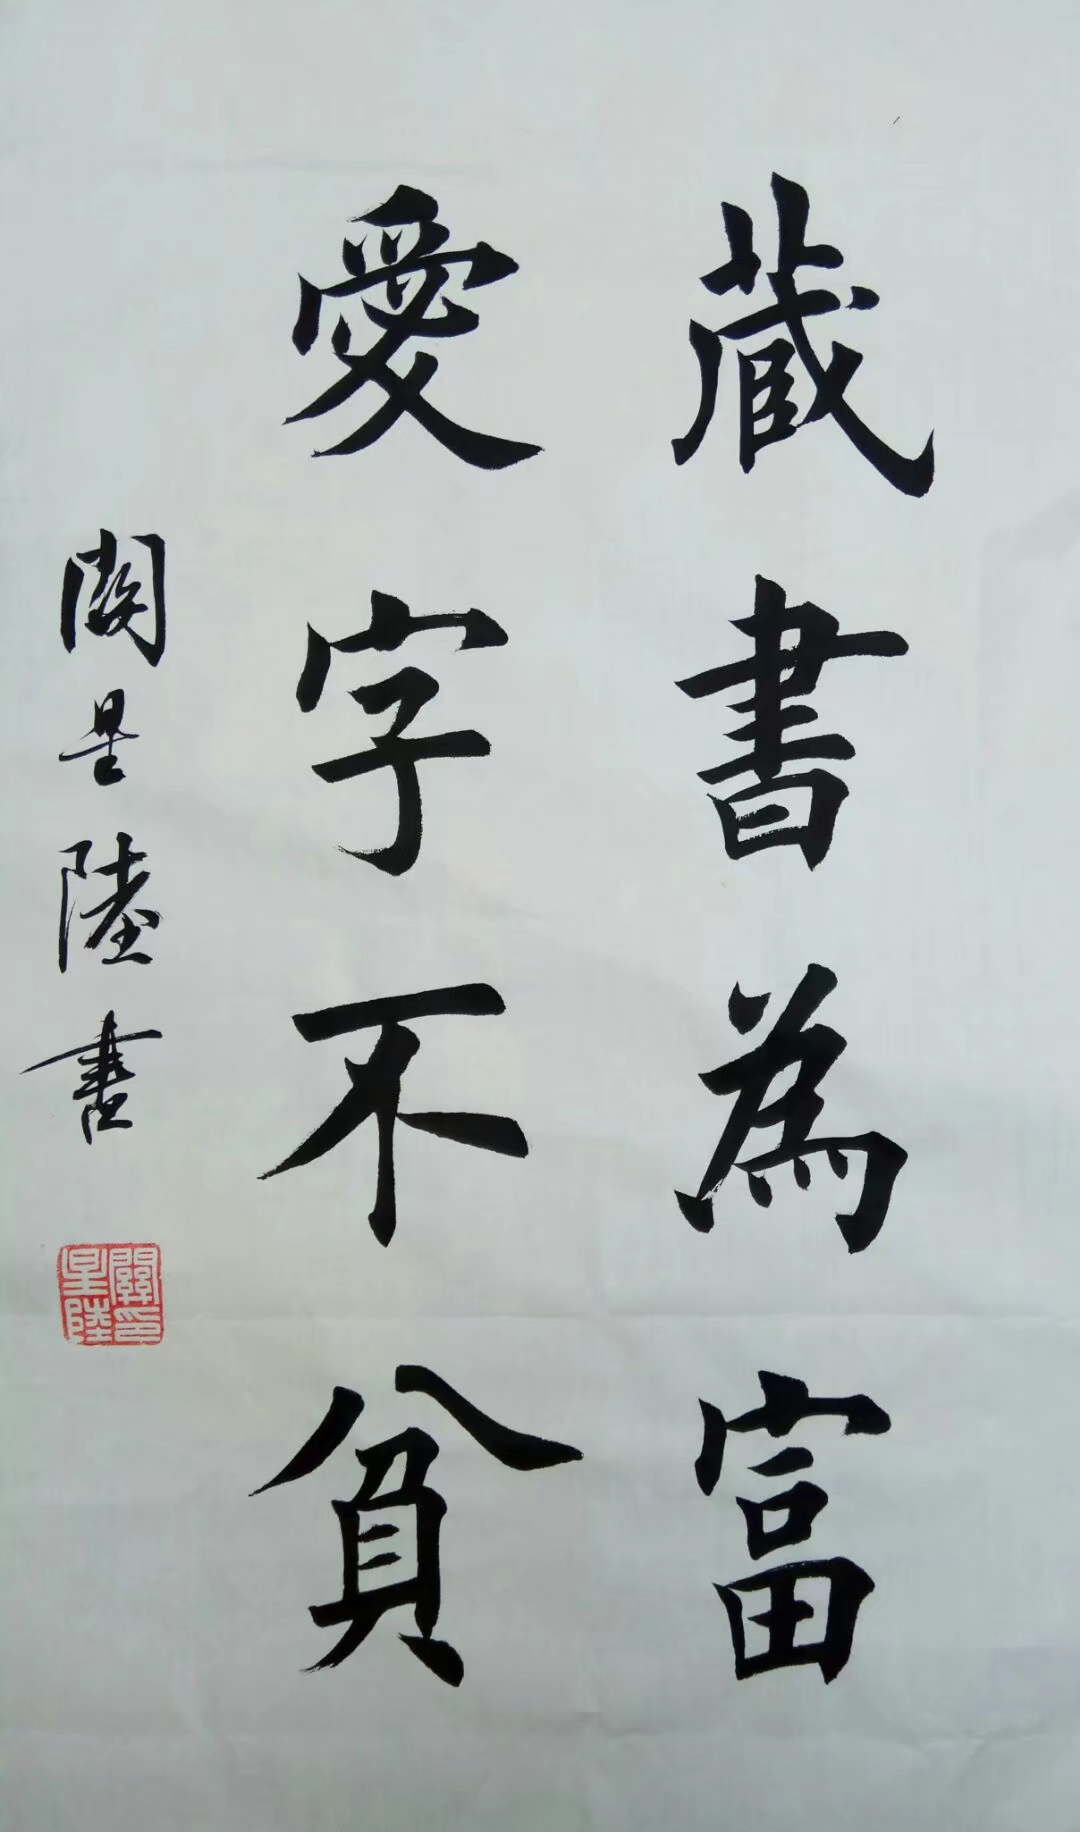 藏書為富
愛字不貧
關星陸書
關印星陸